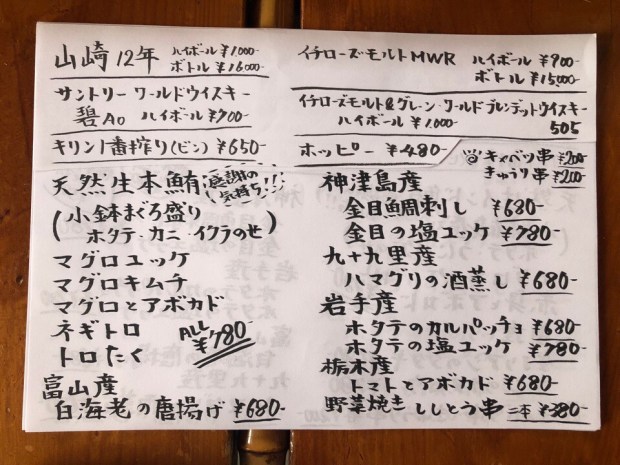 山崎 12年 ハイボール ¥1,000-
ボトル ¥16,000-
サントリー ワールドウイスキー
碧Ao ハイボール ¥700-
キリン1番搾り(ビン) ¥650-
天然生本鮪 感謝の
気持ち!!
(小鉢まぐろ盛り
ホタテ・カニ・イクラのせ)
マグロユッケ
マグロキムチ
マグロとアボカド
ネギトロ
トロたく
ALL
¥780-
富山産
白海老の唐揚げ ¥680-
イチローズモルトMWR ハイボール ¥900-
ボトル ¥15,000-
イチローズモルト&グレーン・ワールドブレンデットウイスキー
ハイボール ¥1,000- 505
ホッピー ¥480-
キャベツ串 ¥200-
きゅうり串 ¥200-
神津島産
金目鯛刺し ¥680-
金目の塩ユッケ ¥780-
九十九里産
ハマグリの酒蒸し ¥680-
岩手産
ホタテのカルパッチョ ¥680-
ホタテの塩ユッケ ¥780-
栃木産
トマトとアボカド ¥680-
野菜焼き ししとう串 二本 ¥380-